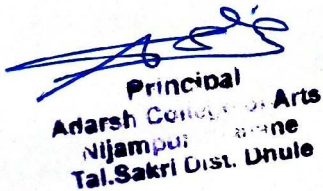 Principal
Adarsh College of Arts
Nijampur
Tal.Sakri Dist. Dhule